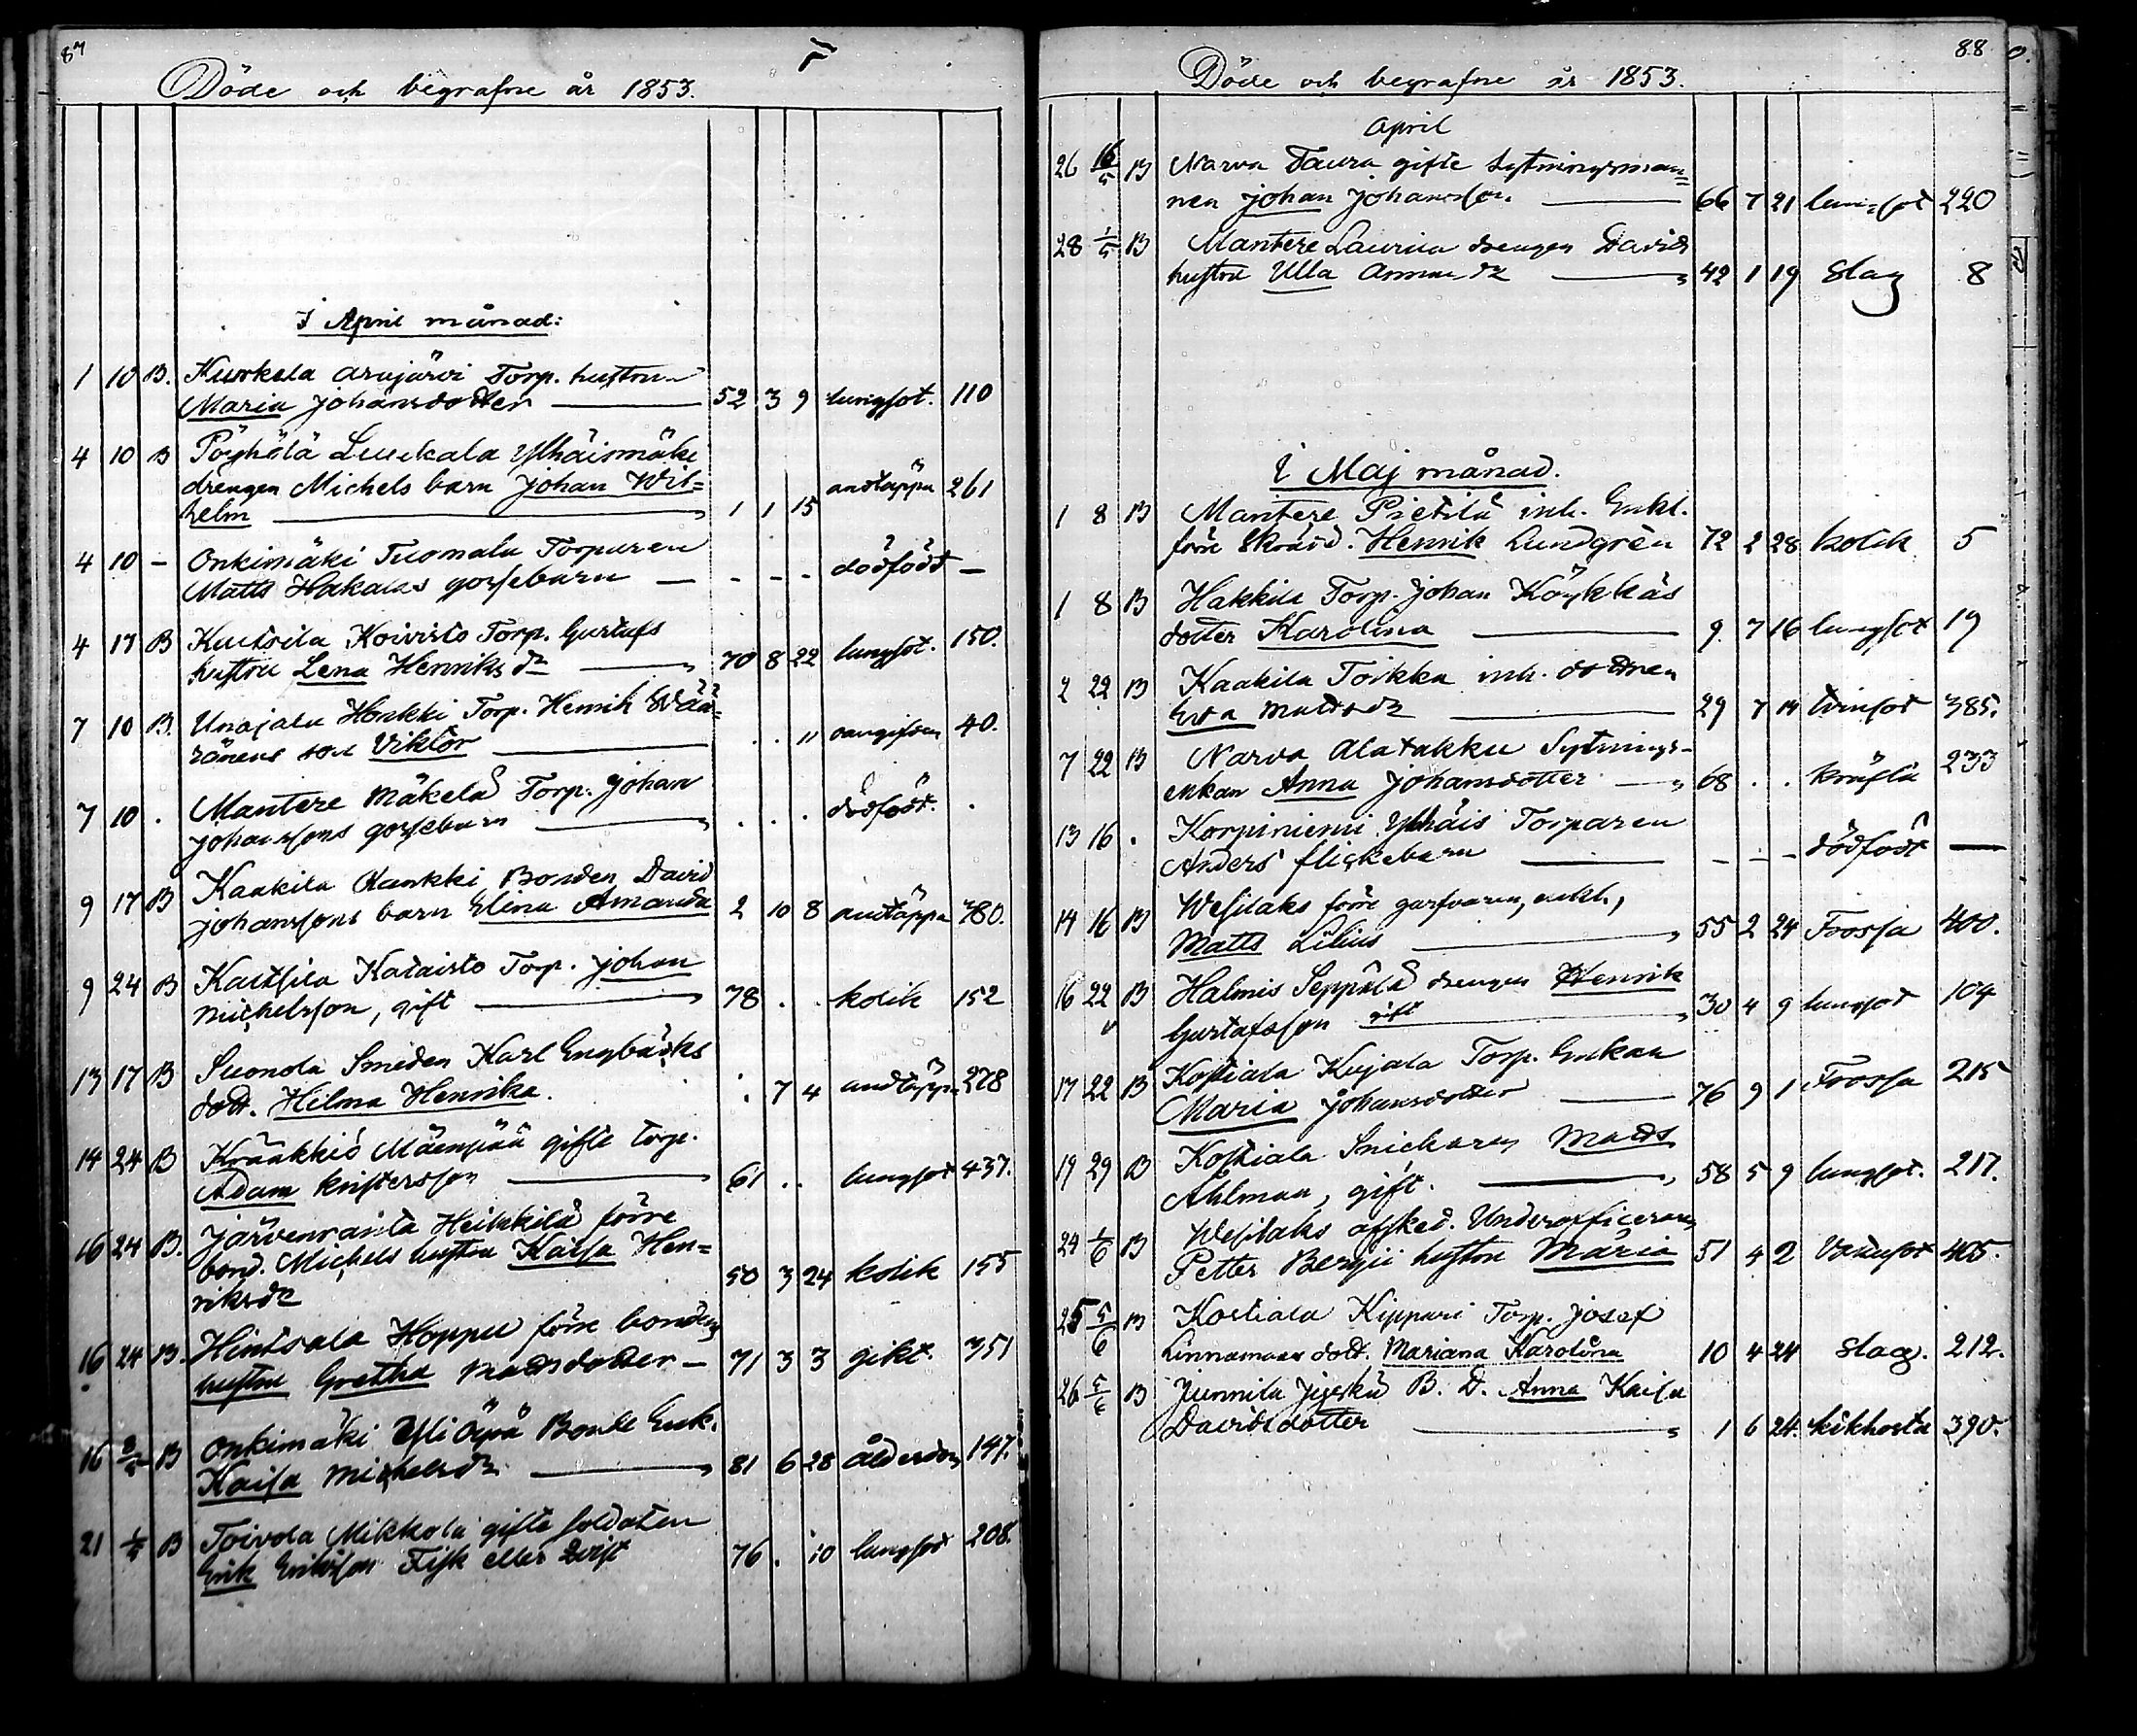 87
Döde och begrafne år 1853.
I April månad:
1 10 B. Kurkela Arajärvi Torp. hustru
Maria Johansdotter 52 3 9 lungsot. 110
4 10 B Pöyhölä Luukala Ylhäismäki
drengen Michels barn Johan Wil=
helm 1 1 15 andtäppa 261
4 10 - Onkimäki Tuomala Torparen
Matts Hakalas gossebarn - - - - dödfödt -
4 17 B Kutsila Koivisto Torp. Gustafs
hustru Lena Henriksdr 70 8 22 lungsot. 150.
7 10 B. Unajala Honkki Torp. Henrik
ränens son Viktor . . " oangifven 40.
7 10 . Mantere Mäkelä Torp. Johan
Johanssons gossebarn . . . dödfödt. .
9 17 B Kaakila Bonden David
Johanssons barn Elina Amanda 2 10 8 andtäppa 380.
9 24 B Kutsila Kataisto Torp. Johan
Michelsson, gift 78 . . kolik 152
13 17 B Suonola Smeden Karl Engbäcks
dott. Hilma Henrika. . 7 4 andtäppa 278
14 24 B Kraakkio Mäenpää gifte torp.
Adam Kristersson 61 . . lungsot 437.
16 24 B. Järvenranta Heikkilä förre
bond. Michels hustru Kaisa Hen=
riksdr 50 3 24 kolik 155
16 24 B. Hintsala Hoppu förre bondens
hustru Gretha Madsdotter - 71 3 3 gikt. 351
16 B Onkimäki Yli Äijä Bonde Enk.
Kaisa Michelsdr 81 6 28 ålderdom 147.
21 B Toivola Mikkola gifte soldaten
Erik Eriksson Fisk eller Qvist 76 . 10 lungsot 208.
88
Döde och begrafne år 1853.
April
26 B Narva Taura gifte Sytningsman=
nen Johan Johansson 66 7 21 lungsot 220
28 1/5 B Mantere Lauria drengen Davids
hustru Ulla 42 1 19 Slag 8
I Maj månad.
1 8 B Mantere Pietilä inh. Enkl.
förre Skrädd. Henrik Lundgrén 72 2 28 kolik 5
1 8 B Hakkila Torp. Johan Köykkäs
dotter Karolina 9. 7 16 lungsot 19
2 22 B Kaakila Toikka inh. dottren
Eva Matsdr 29 7 14 tvinsot 385.
7 22 B Narva Alatakku Sytnings-
enkan Anna Johansdotter 68 . . kräfta 233
13 16 . Korpiniemi Ylhäis Torparen
Anders flickebarn - - - dödfödt -
14 16 B Wesilaks förre garfvaren, enkl,
Matts Lilius 55 2 24 Frossa 400.
16 22 B Halmis Seppälä drengen Henrik
Gustafsson gift 30 4 9 lungsot 104
17 22 B Kostiala Kujala Torp. Enkan
Maria Johansdotter 76 9 1 Frossa 215
19 29 B Kostiala Snickaren Mads
Ahlman, gift. 58 5 9 lungsot. 217.
24 1/6 B Wesilaks afsked. Underofficeraren
Petter Bergii hustru Maria 51 4 2 Vattusot 405.
25 5/6 B Kostiala Kippari Torp. Josef
Linnamaas dott. Mariana Karolina 10 4 24 Slag. 212.
26 5/6 B Junnila B. D. Anna Kaisa
Davidsdotter 1 6 24. kikhosta 390.